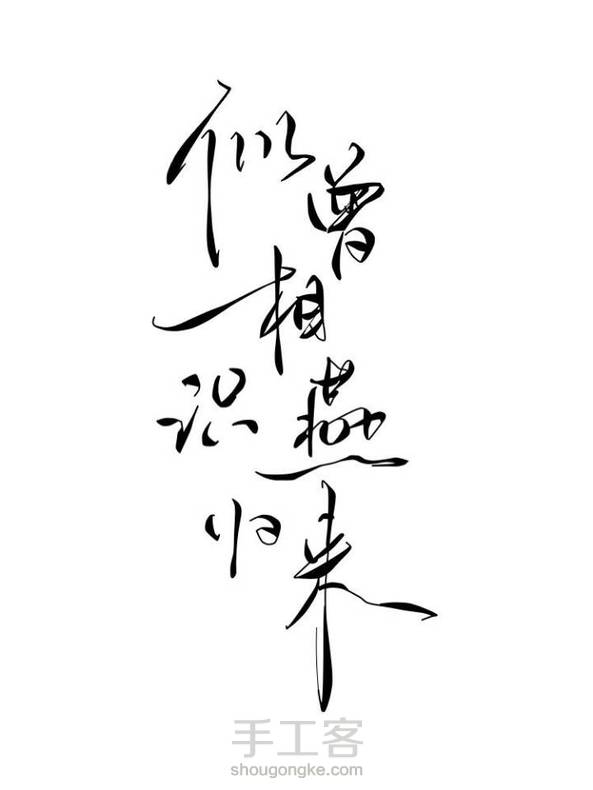 似曾
相
识燕
归来
手工客
shougongke.com